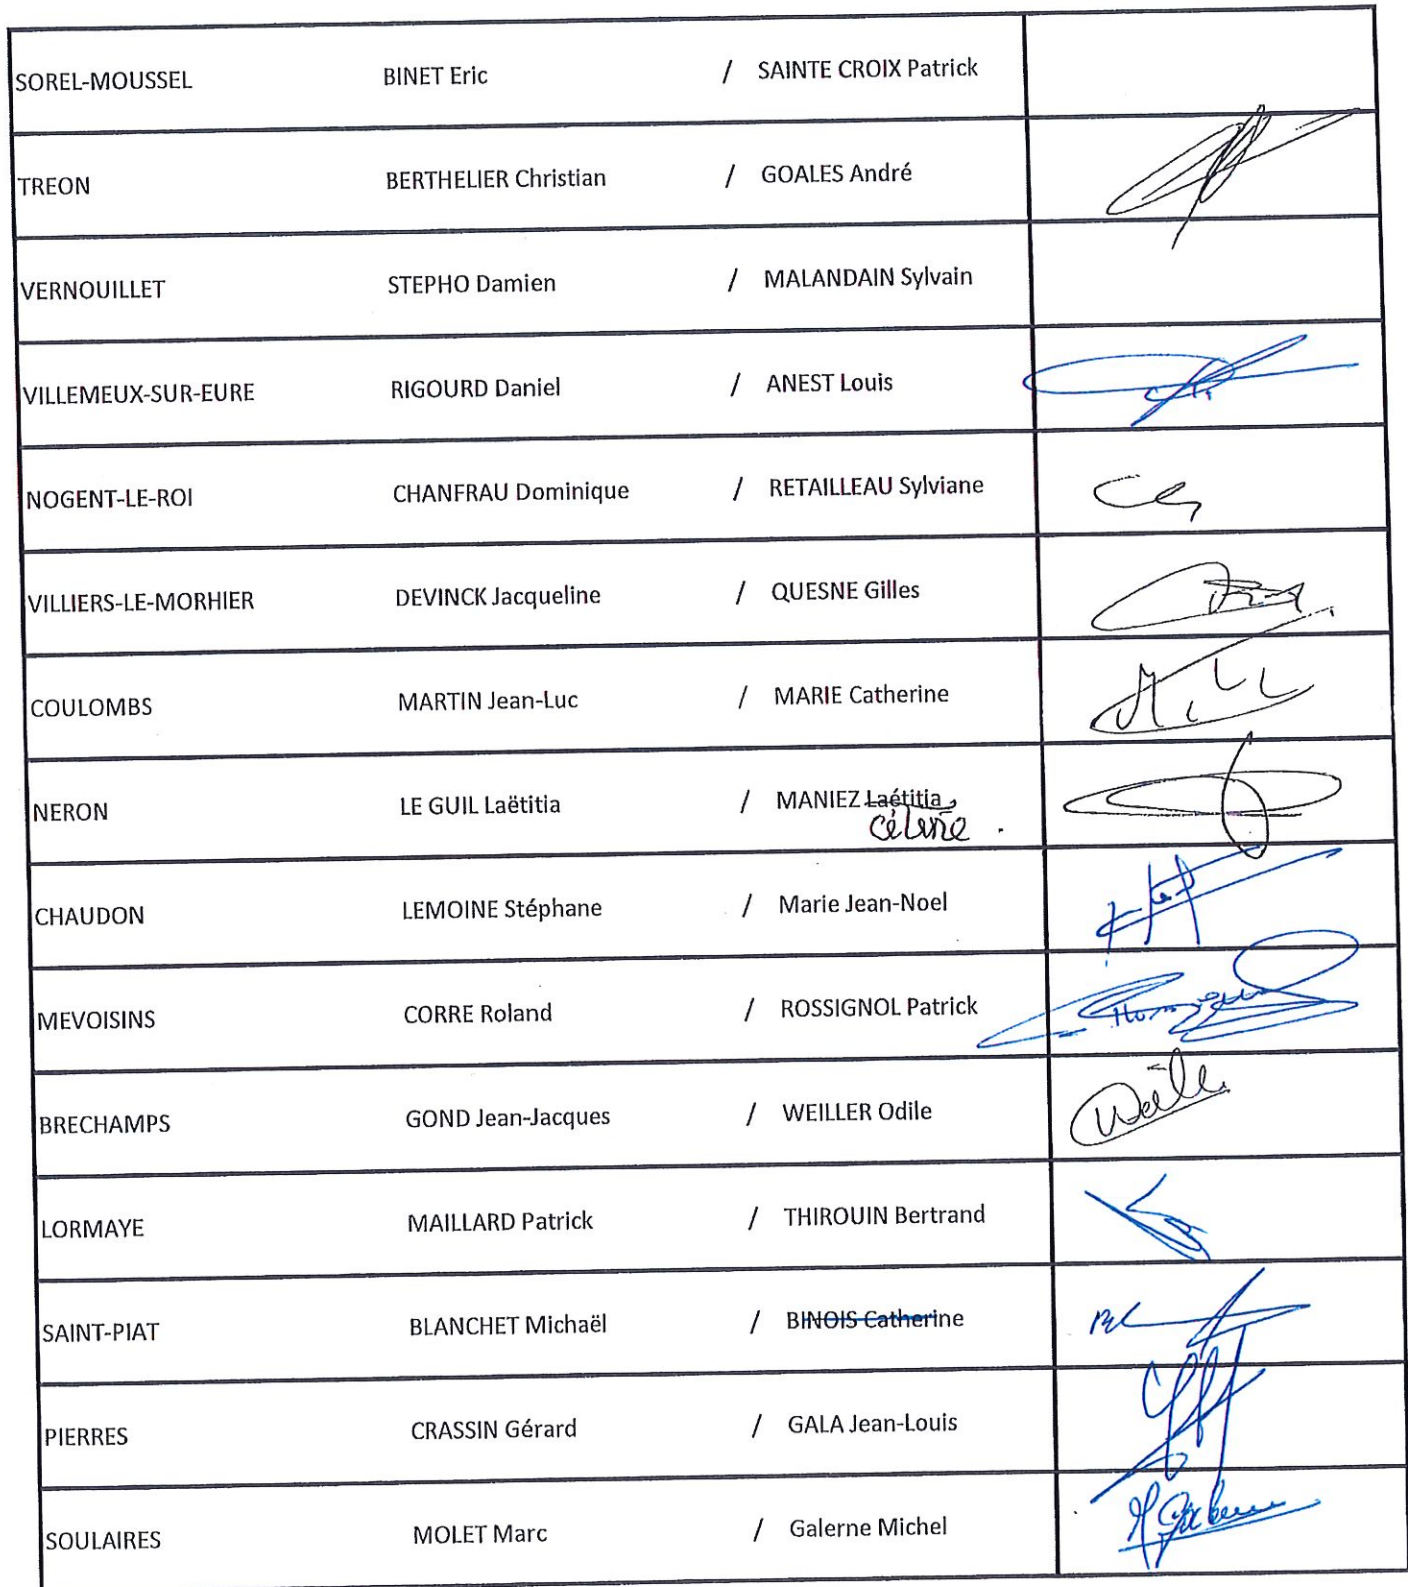 SOREL-MOUSSEL BINET Eric / SAINTE CROIX Patrick
TREON BERTHELIER Christian / GOALES André
VERNOUILLET STEPHO Damien / MALANDAIN Sylvain
VILLEMEUX-SUR-EURE RIGOURD Daniel / ANEST Louis
NOGENT-LE-ROI CHANFRAU Dominique / RETAILLEAU Sylviane
VILLIERS-LE-MORHIER DEVINCK Jacqueline / QUESNE Gilles
COULOMBS MARTIN Jean-Luc / MARIE Catherine
NERON LE GUIL Laëtitia / MANIEZ Laétitia
Céline
CHAUDON LEMOINE Stéphane / Marie Jean-Noel
MEVOISINS CORRE Roland / ROSSIGNOL Patrick
BRECHAMPS GOND Jean-Jacques / WEILLER Odile
LORMAYE MAILLARD Patrick / THIROUIN Bertrand
SAINT-PIAT BLANCHET Michaël / BINOIS Catherine
PIERRES CRASSIN Gérard / GALA Jean-Louis
SOULAIRES MOLET Marc / Galerne Michel